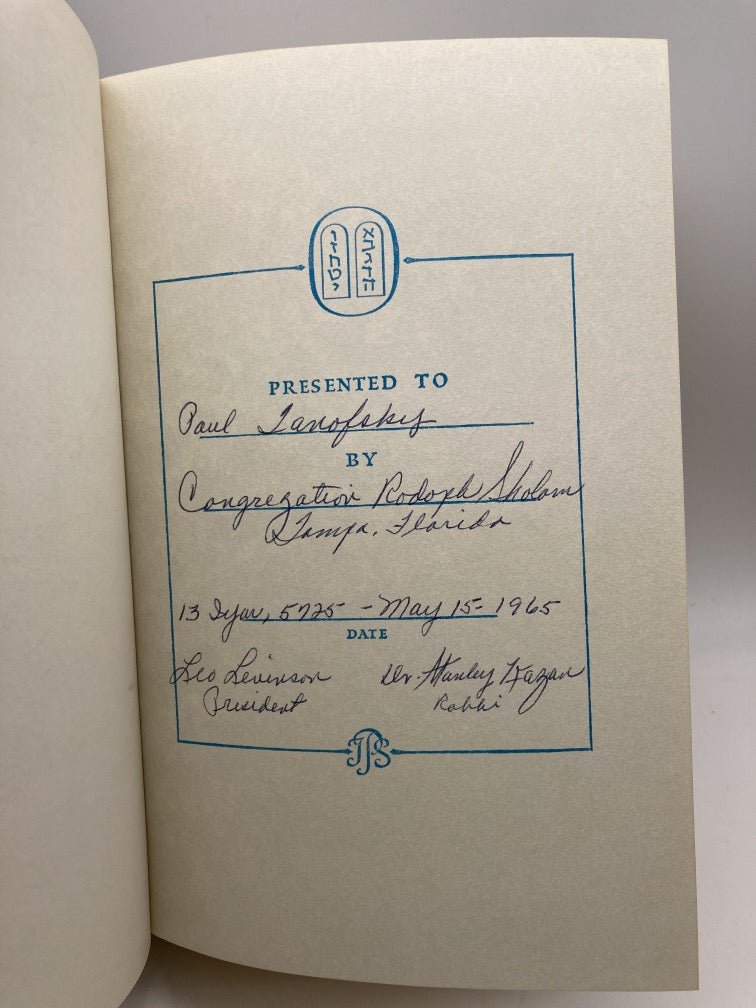 אבגדה
וזחטי
PRESENTED TO
Paul Zanofsky
BY
Congregation Rodoph Sholom
Tampa, Florida
13 Iyar, 5725 - May 15 - 1965
DATE
Leo Levinson Dr. Stanley Kazan
President Rabbi
JPS